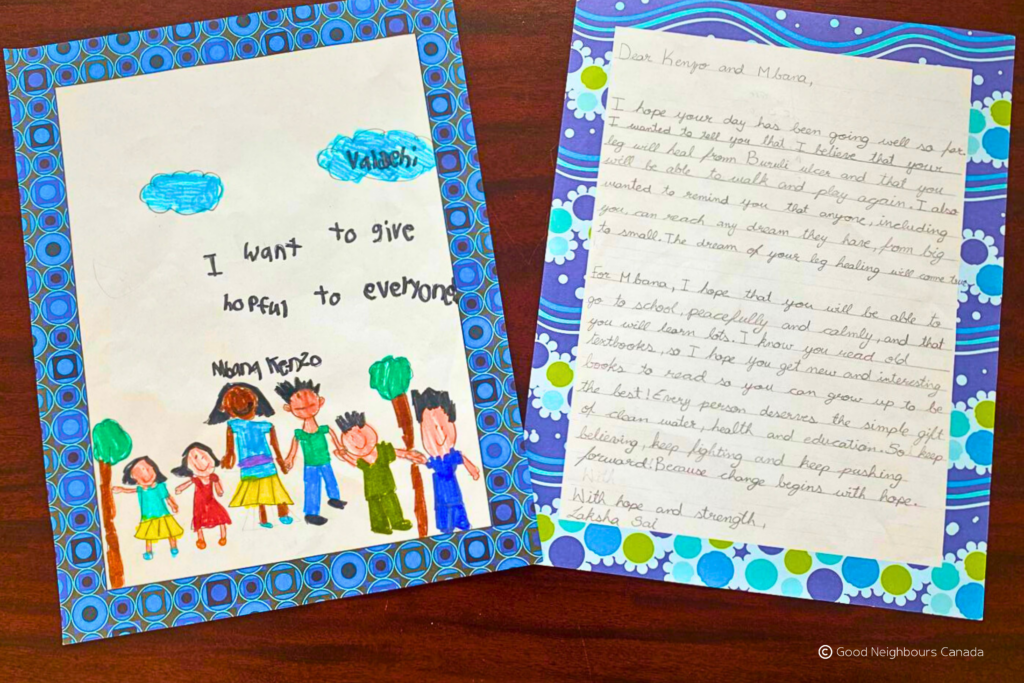 Valachi
I want to give
hopful to everyone
Mbang Kenzo
Dear Kenzo and Mbana,
I hope your day has been going well so far.
I wanted to tell you that I believe that your
leg will heal from Buruli ulcer and that you
will be able to walk and play again. I also
wanted to remind you that anyone, including
you, can reach any dream they have, from big
to small. The dream of your leg healing will come true
For Mbana, I hope that you will be able to
go to school, peacefully and calmly, and that
you will learn lots. I know you read old
textbooks, so I hope you get new and interesting
books to read so you can grow up to be
the best! Every person deserves the simple gift
of clean water, health and education. So keep
believing, keep fighting and keep pushing
forward! Because change begins with hope.
With hope and strength,
Laksha Sai
© Good Neighbours Canada